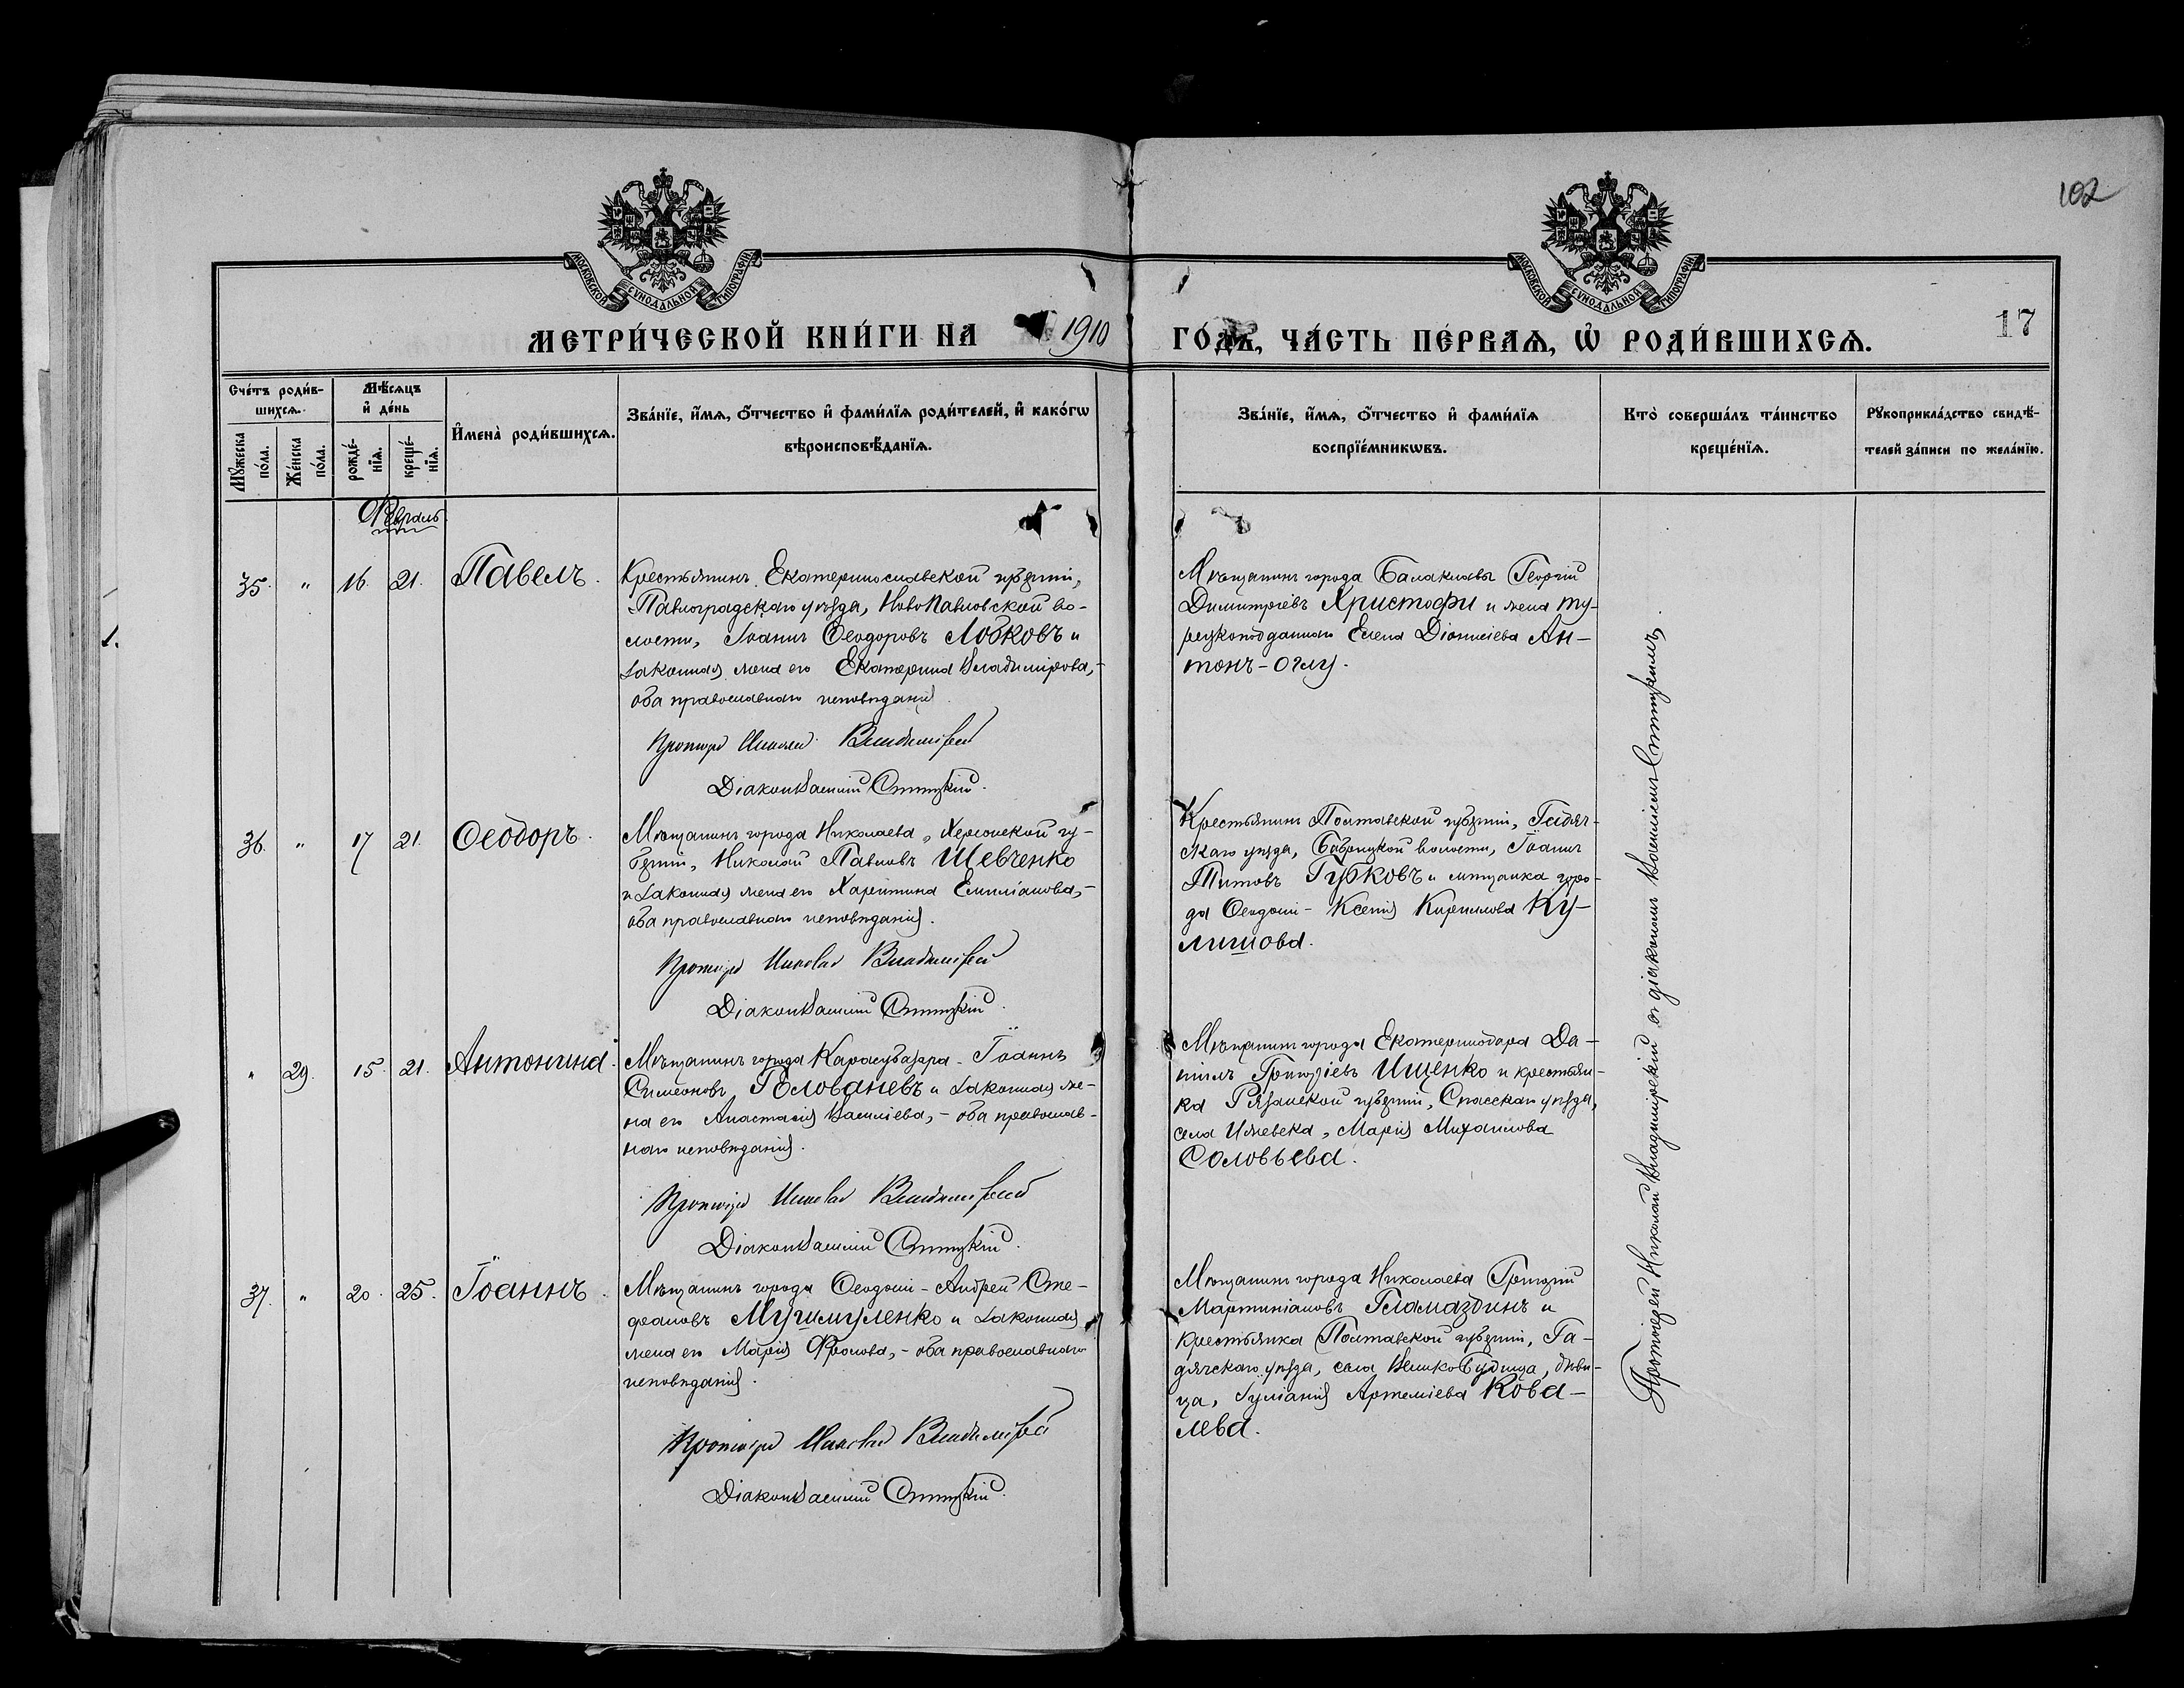 102
МОСКОВСКОЙ СѴНОДАЛЬНОЙ ТИПОГРАФІИ
МОСКОВСКОЙ СѴНОДАЛЬНОЙ ТИПОГРАФІИ
МЕТРИ́ЧЕСКОЙ КНИ́ГИ НА 1910 ГО́ДЪ, ЧА́СТЬ ПЕ́РВАѦ, Ѡ҆ РОДИ́ВШИХСѦ.
17
Сче́тъ роди́в-
шихсѧ.
Мꙋ́жеска по́ла.
Же́нска по́ла.
Мѣ́сѧцъ
и҆ де́нь
рожде́-
нїѧ.
креще́-
нїѧ.
И҆мена̀ роди́вшихсѧ.
Зва́нїе, и҆́мѧ, ѻ҆́тчество и҆ фами́лїѧ роди́телей, и҆ како́гѡ
вѣроисповѣ́данїѧ.
Зва́нїе, и҆́мѧ, ѻ҆́тчество и҆ фами́лїѧ
воспрїе́мникѡвъ.
Кто̀ соверша́лъ та́инство
креще́нїѧ.
Рꙋкоприкла́дство свидѣ́-
телей за́писи по жела́нїю.
Февраль
35. " 16. 21. Павелъ.
Крестьянинъ Екатеринославской губерніи,
Павлоградскаго уѣзда, НовоПавловской во-
лости, Іоаннъ Ѳеодоровъ Лобковъ и
законная жена его Екатерина Владимірова,-
оба православнаго исповѣданія.
Протоіерей Николай Владимірскій
Діаконъ Василій Ситицкій.
Мѣщанинъ города Балаклавы Георгій
Димитріевъ Христофи и жена ту-
рецкоподданнаго Елена Діонисіева Ан-
тонъ-оглу.
36. " 17 21. Ѳеодоръ.
Мѣщанинъ города Николаева, Херсонской гу-
берніи, Николай Павловъ Шевченко
и законная жена его Харитина Емиліанова,-
оба православнаго исповѣданія.
Протоіерей Николай Владимірскій
Діаконъ Василій Ситицкій.
Крестьянинъ Полтавской губерніи, Гадяч-
скаго уѣзда, волости, Іоаннъ
Титовъ Губковъ и мѣщанка горо-
да Ѳеодосіи - Ксенія Кириллова Ку-
лишова.
" 29. 15. 21. Антонина.
Мѣщанинъ города Карасубазара - Іоаннъ
Симеоновъ Голованевъ и законная же-
на его Анастасія Василіева,- оба православ-
наго исповѣданія.
Протоіерей Николай Владимірскій
Діаконъ Василій Ситицкій.
Мѣщанинъ города Екатеринодара Да-
ніилъ Григоріевъ Ищенко и крестьян-
ка Рязанской губерніи, Спасскаго уѣзда,
села Ижевска, Марія Михаилова
Соловьева.
37. " 20. 25. Іоаннъ.
Мѣщанинъ города Ѳеодосіи - Андрей Сте-
фановъ Мушмуленко и законная
жена его Марія Фролова,- оба православнаго
исповѣданія.
Протоіерей Николай Владимірскій
Діаконъ Василій Ситицкій.
Мѣщанинъ города Николаева Григорій
Мартиніановъ Гламаздинъ и
крестьянка Полтавской губерніи, Га-
дячскаго уѣзда, села ВеликоБудища, дѣви-
ца, Іуліанія Артеміева Кова-
лева.
Протоіерей Николай Владимірскій съ діакономъ Василіемъ Ситицкимъ.